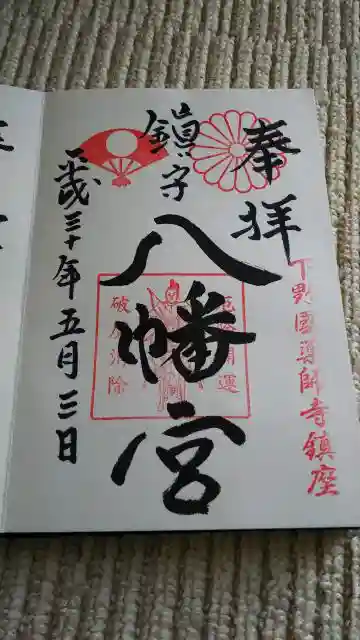 奉拝
下野國薬師寺鎮座
鎮守
八幡宮
開運
消除
平成三十年五月三日